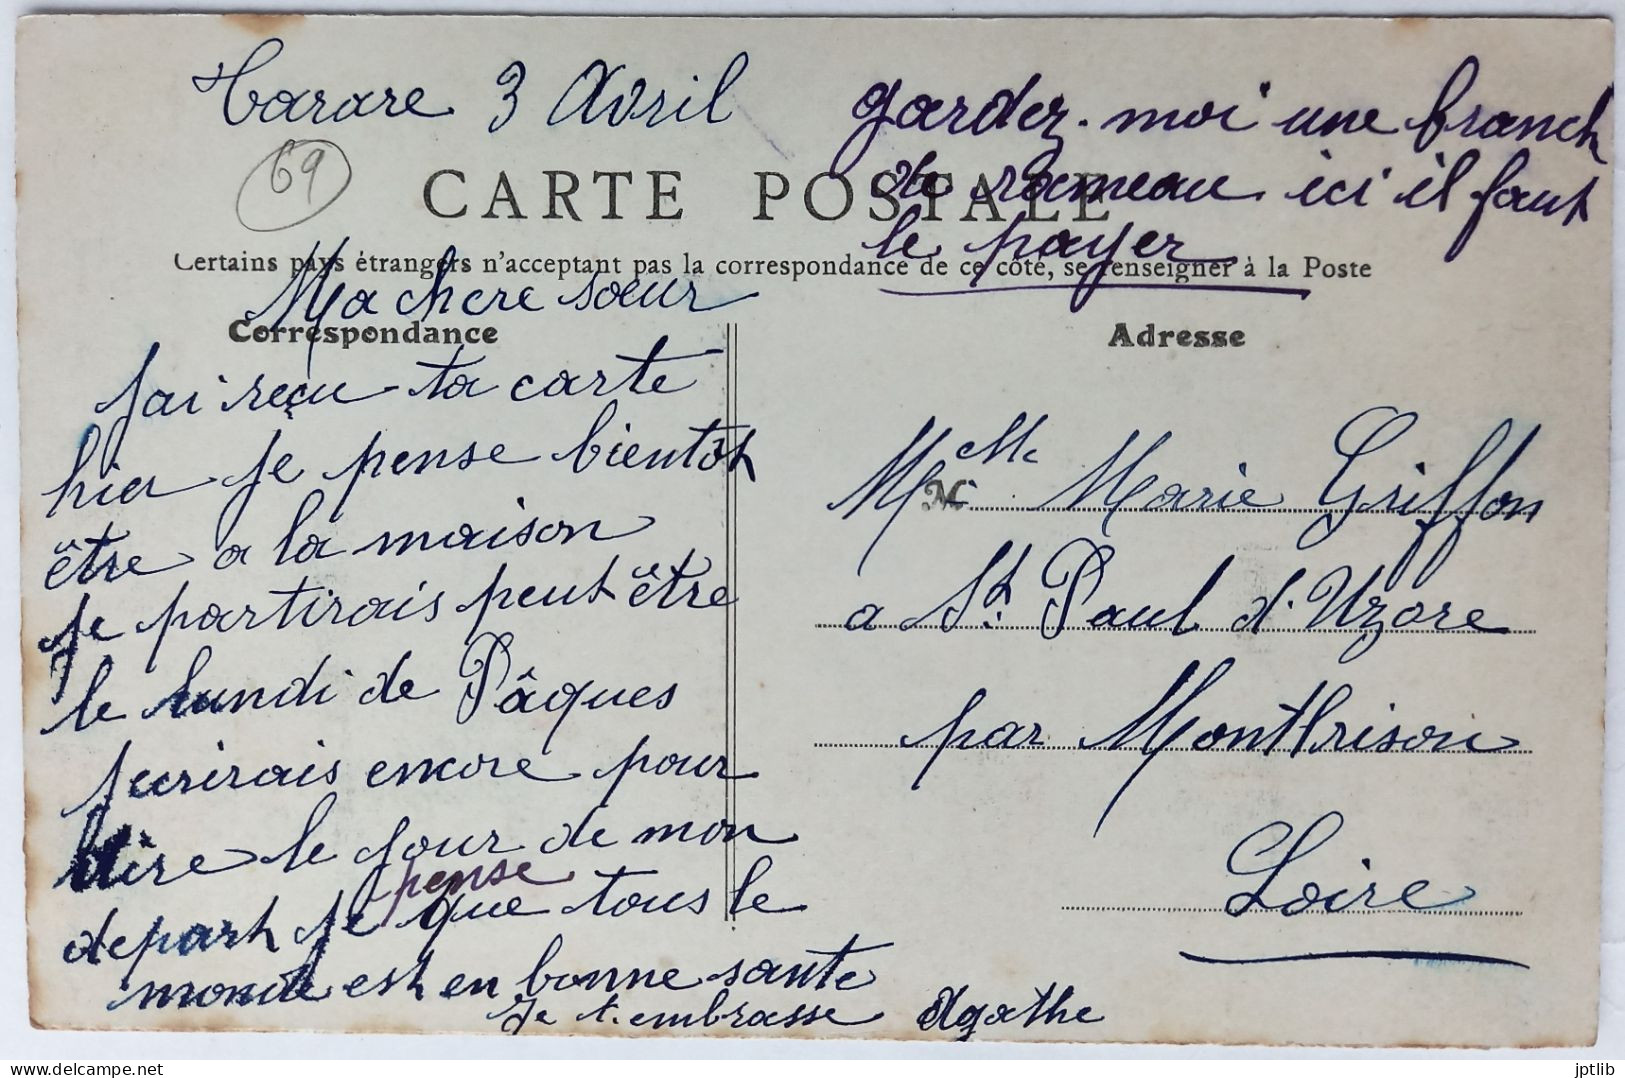 Tarare 3 Avril
gardez-moi une branch
de rameau ici il faut
le payer
69
CARTE POSTALE
Certains pays étrangers n'acceptent pas la correspondance de ce côté, se renseigner à la Poste
Ma chere sœur
Correspondance
Adresse
j'ai reçu ta carte
hier je pense bientôt
être a la maison
je partirais peut être
le lundi de Pâques
j'ecrirais encore pour
dire le jour de mon
depart je pense que tous le
monde est en bonne sante
Je t'embrasse Agathe
M
Melle Marie Griffon
a St. Paul d'Uzore
par Montbrison
Loire
jptlib